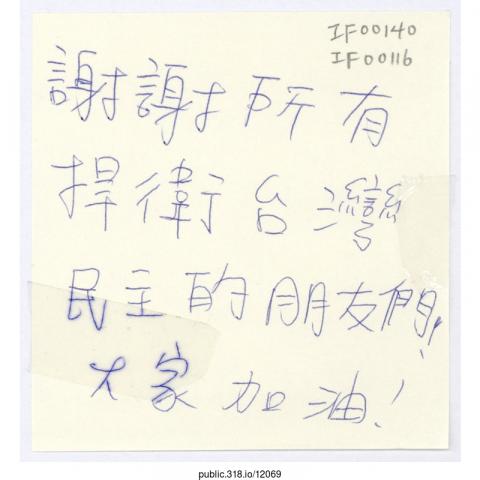 IF00140
IF00116
謝謝所有
捍衛台灣
民主的朋友們!
大家加油!
public.318.io/12069